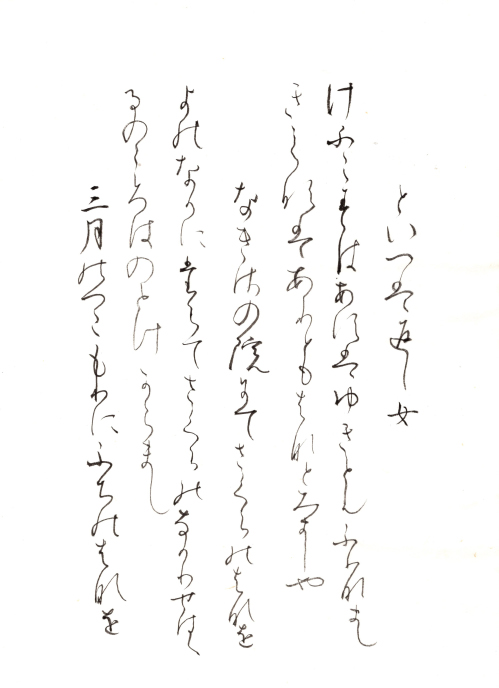 といへは返し女
けふこすはあすはゆきとそふりなまし
きえすはありともはなとみましや
なきさの院にてさくらのはなを
よのなかにたえてさくらのなかりせはゝ
るのこゝろはのとけからまし
三月のつこもりにふちのはなを